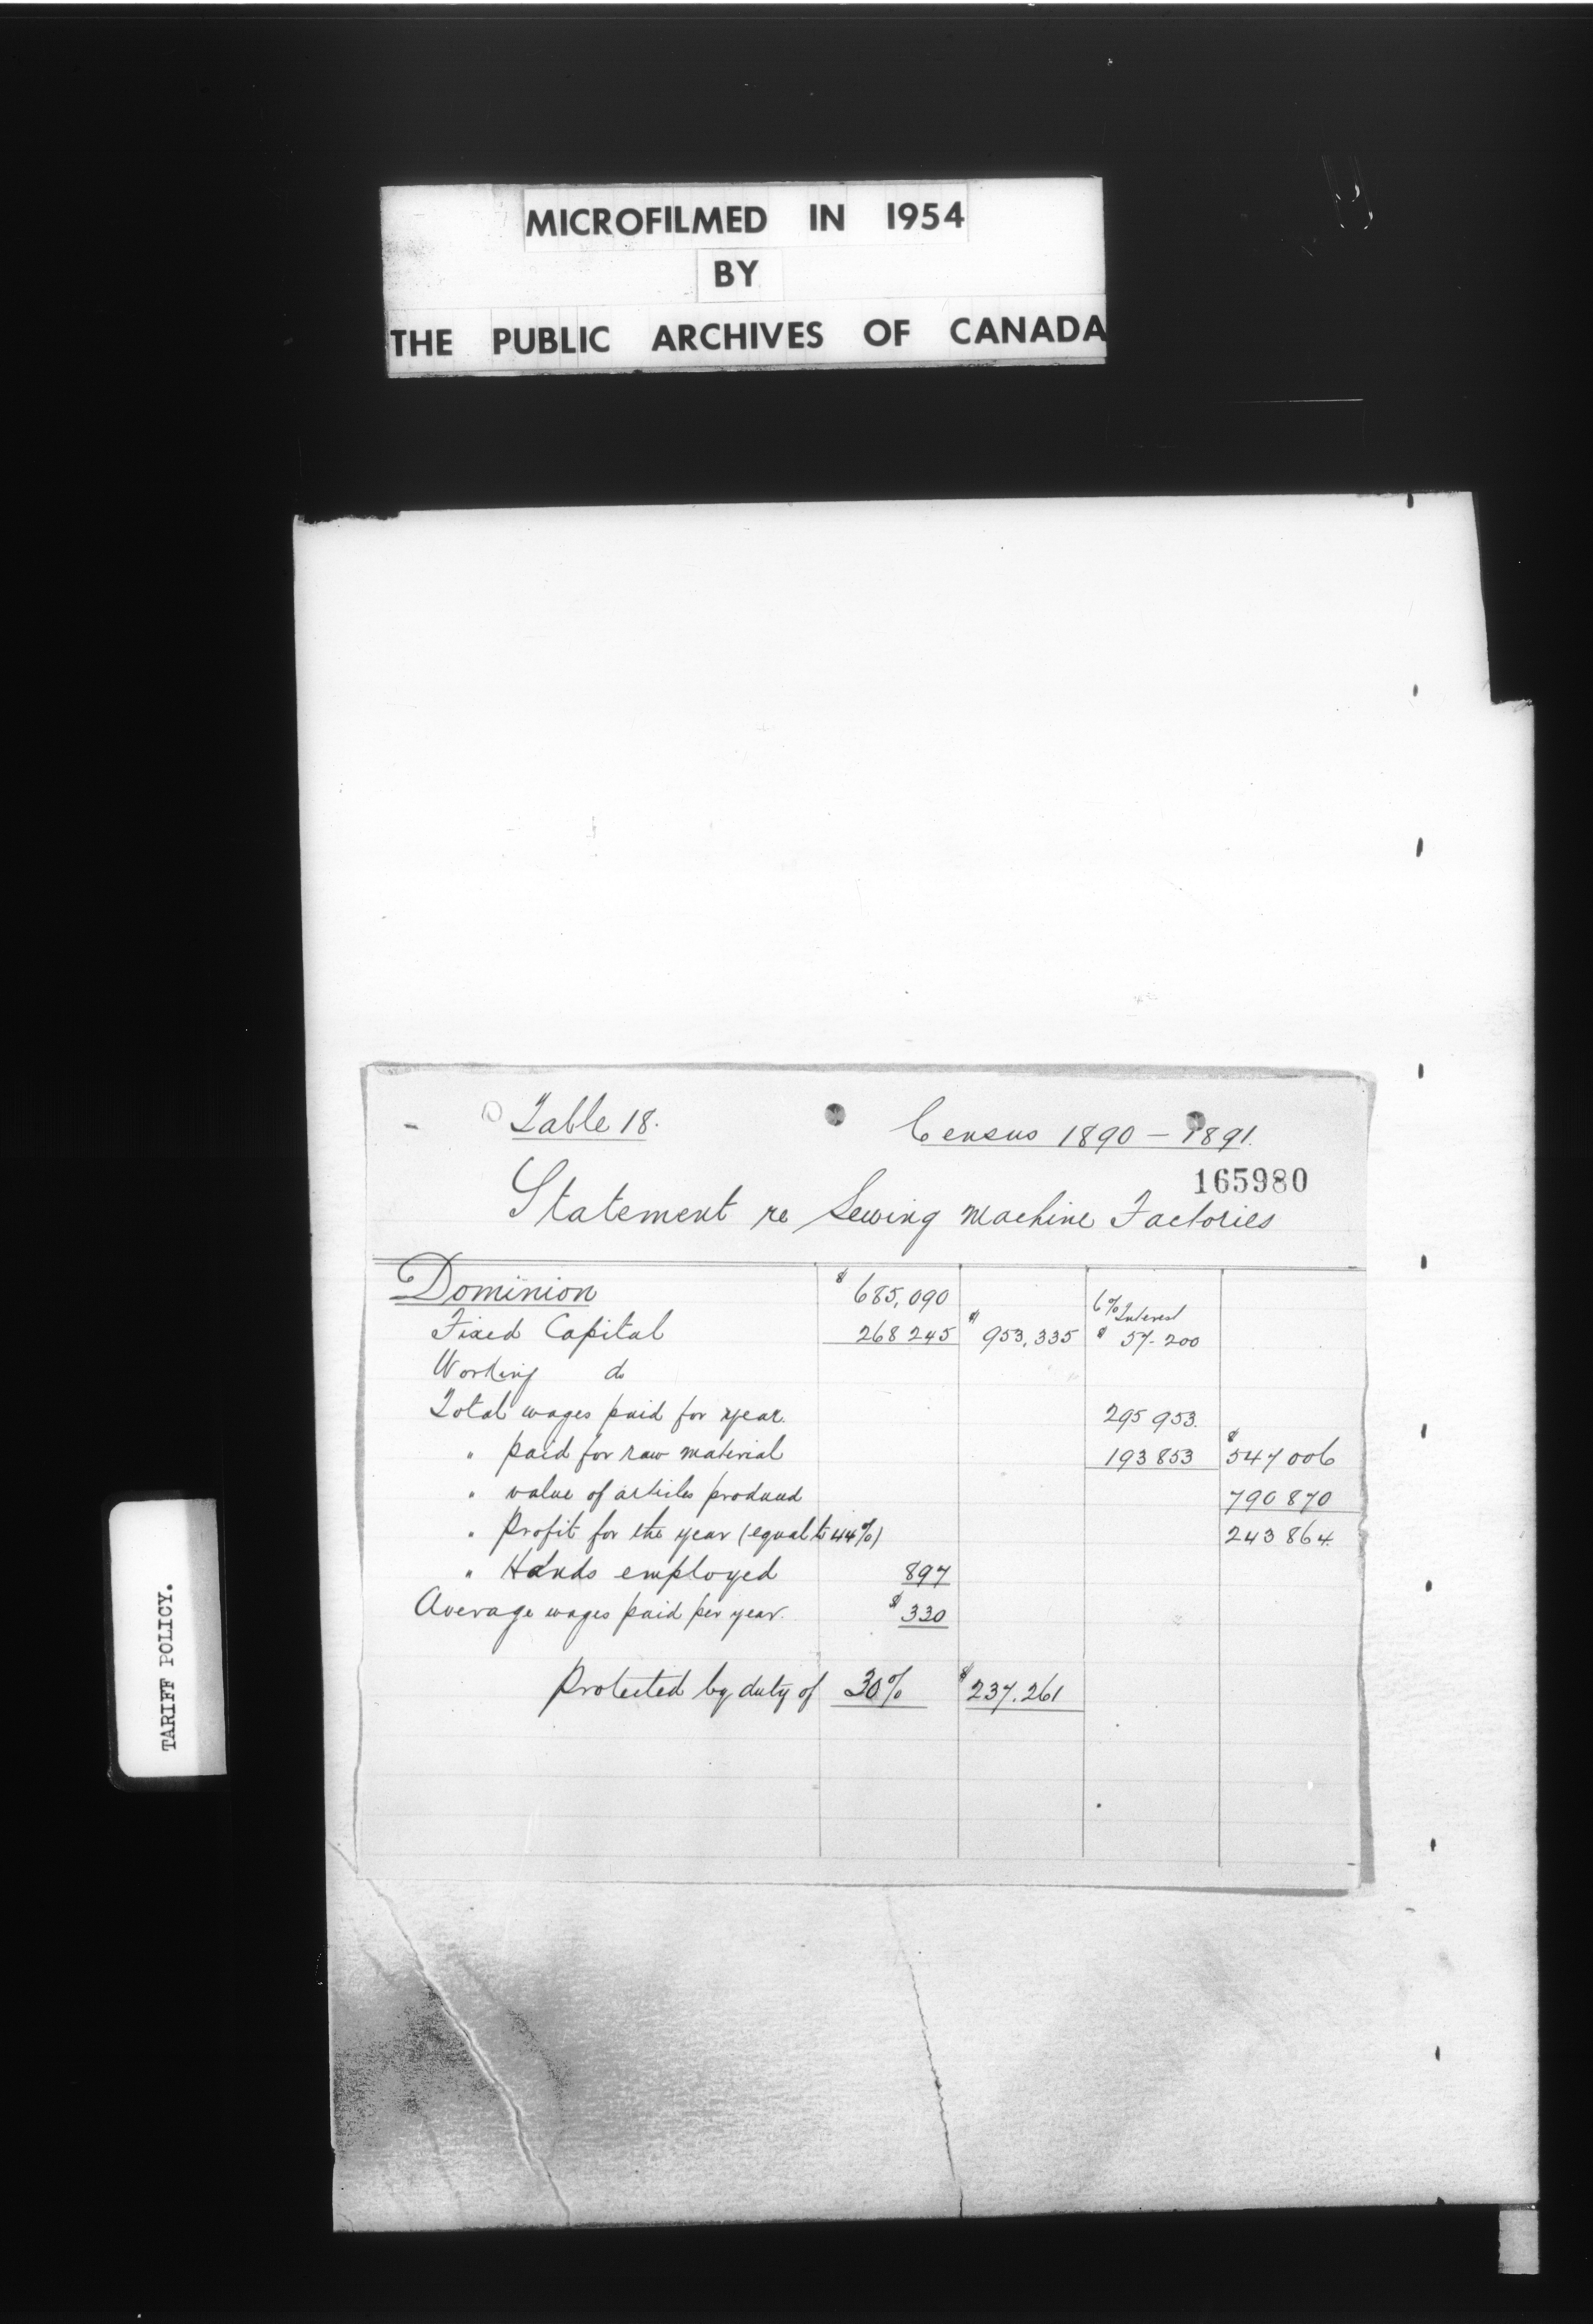 MICROFILMED IN 1954
BY
THE PUBLIC ARCHIVES OF CANADA
Table 18. Census 1890 – 1891.
165980
Statement re Sewing Machine Factories
Dominion $ 685,090 6% Interest
Fixed Capital 268 245 $ 953,335 $ 57.200
Working do
Total wages paid for year. 295 953.
" paid for raw material 193 853 $ 547 006
" value of articles produced 790 870
" Profit for the year (equal to 44%) 243 864.
" Hands employed 897
Average wages paid per year. $ 330
Protected by duty of 30% $ 237.261
TARIFF POLICY.